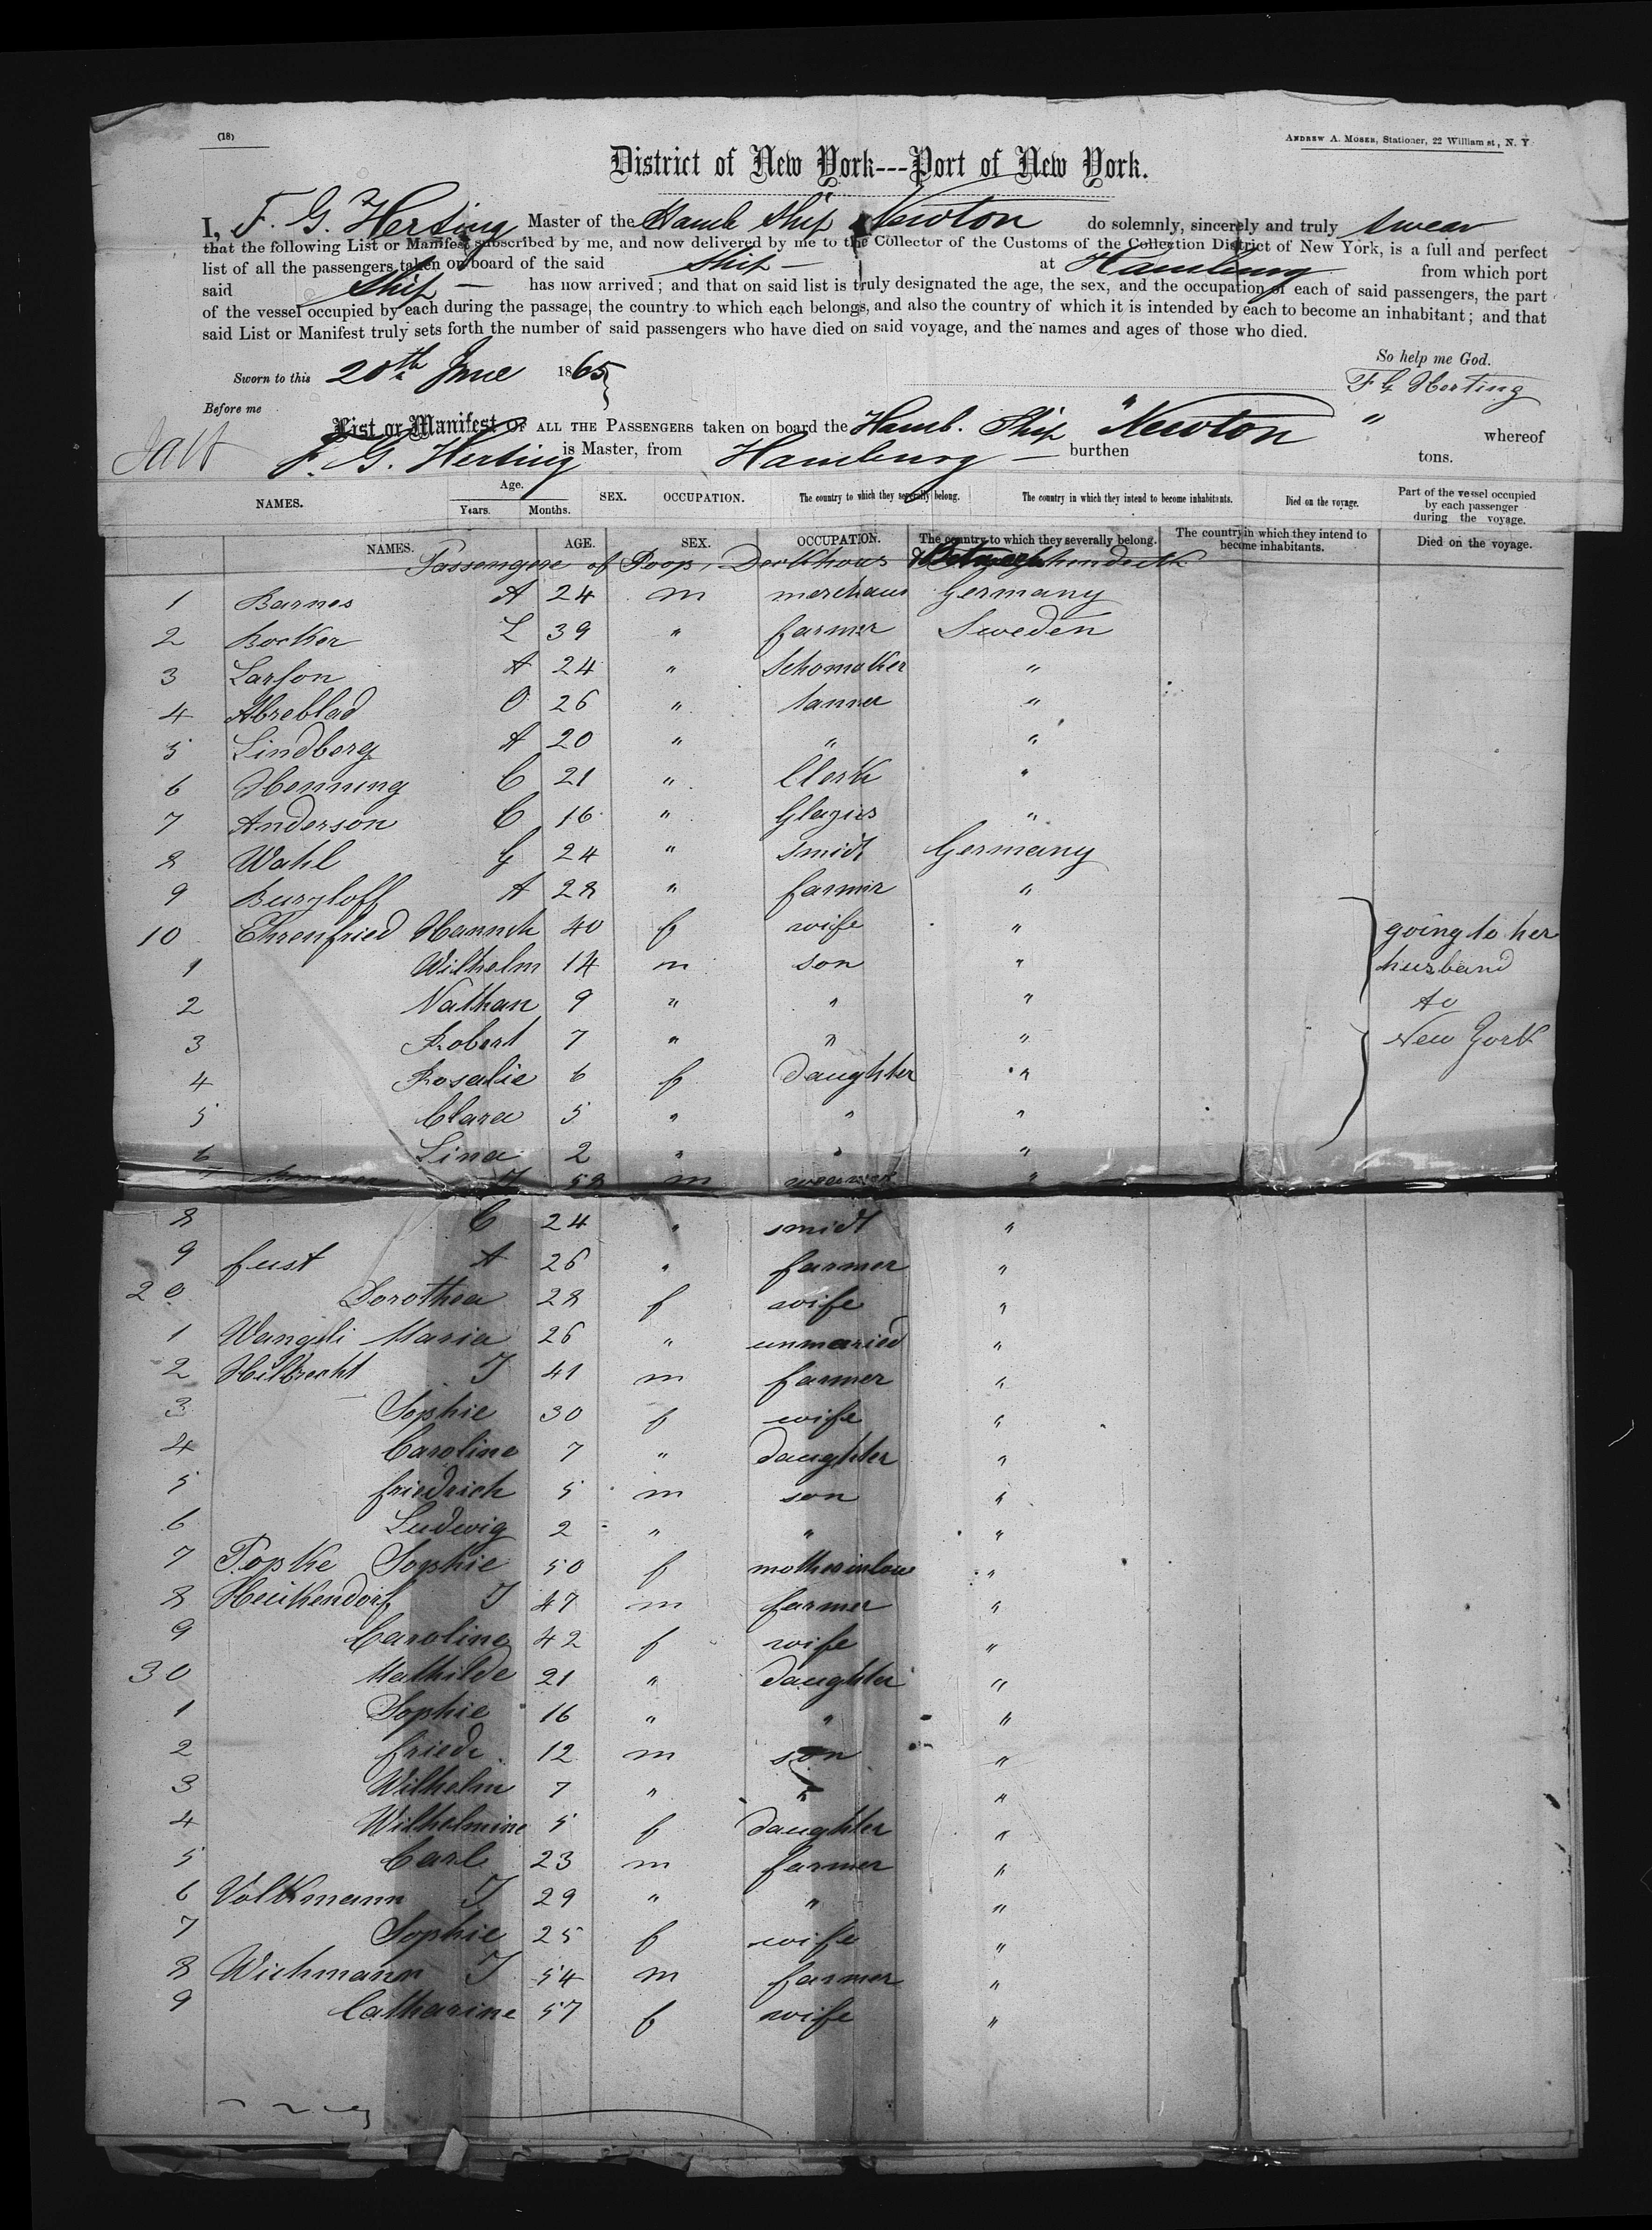 (18)
ANDREW A. MOSER, Stationer, 22 William st, N. Y.
District of New York---Port of New York.
I, F. G. Herting Master of the Hamb Ship Newton do solemnly, sincerely and truly swear
that the following List or Manifest subscribed by me, and now delivered by me to the Collector of the Customs of the Collection District of New York, is a full and perfect
list of all the passengers taken on board of the said Ship — at Hamburg from which port
said Ship — has now arrived; and that on said list is truly designated the age, the sex, and the occupation of each of said passengers, the part
of the vessel occupied by each during the passage, the country to which each belongs, and also the country of which it is intended by each to become an inhabitant; and that
said List or Manifest truly sets forth the number of said passengers who have died on said voyage, and the names and ages of those who died.
So help me God.
Sworn to this 20th June 1865
F G Herting
Before me
List or Manifest OF ALL THE PASSENGERS taken on board the Hamb. Ship "Newton" whereof
F. G. Herting is Master, from Hamburg — burthen tons.
NAMES. Age. Years. Months. SEX. OCCUPATION. The country to which they severally belong. The country in which they intend to become inhabitants. Died on the voyage. Part of the vessel occupied by each passenger during the voyage.
NAMES. AGE. SEX. OCCUPATION. The country to which they severally belong. The country in which they intend to become inhabitants. Died on the voyage.
Passengers of Poop, Deckhous
1 Barnes A 24 m merchaus Germany
2 Bocker L 39 " farmer Sweden
3 Larson A 24 " Schomaker "
4 Abreblad O 26 " tanner "
5 Lindberg A 20 " " "
6 Henning C 21 " Clerk "
7 Anderson C 16 " Glazies "
8 Wahl G 24 " smidt Germany
9 Burgloff A 28 " farmer "
10 Ehrenfried Hannch 40 f wife " going to her
1 Wilhelm 14 m son " husband
2 Nathan 9 " " " to
3 Robert 7 " " " New York
4 Rosalie 6 f daughter "
5 Clara 5 " " "
6 Lina 2 " " "
7 J 58 m "
8 C 24 " smidt "
9 fust A 26 " farmer "
20 Dorothea 28 f wife "
1 Wangeli Maria 26 " unmaried "
2 Hilbrecht J 41 m farmer "
3 Sophie 30 f wife "
4 Caroline 7 " daughter "
5 friedrich 5 m son "
6 Ludwig 2 " " "
7 Topke Sophie 50 f motherinlaw "
8 Heukendorf J 47 m farmer "
9 Caroline 42 f wife "
30 Mathilde 21 " daughter "
1 Sophie 16 " " "
2 friedr. 12 m son "
3 Wilhelm 7 " " "
4 Wilhelmine 5 f daughter "
5 Carl 23 m farmer "
6 Volkmann J 29 " " "
7 Sophie 25 f wife "
8 Wichmann J 54 m farmer "
9 Catharine 57 f wife "